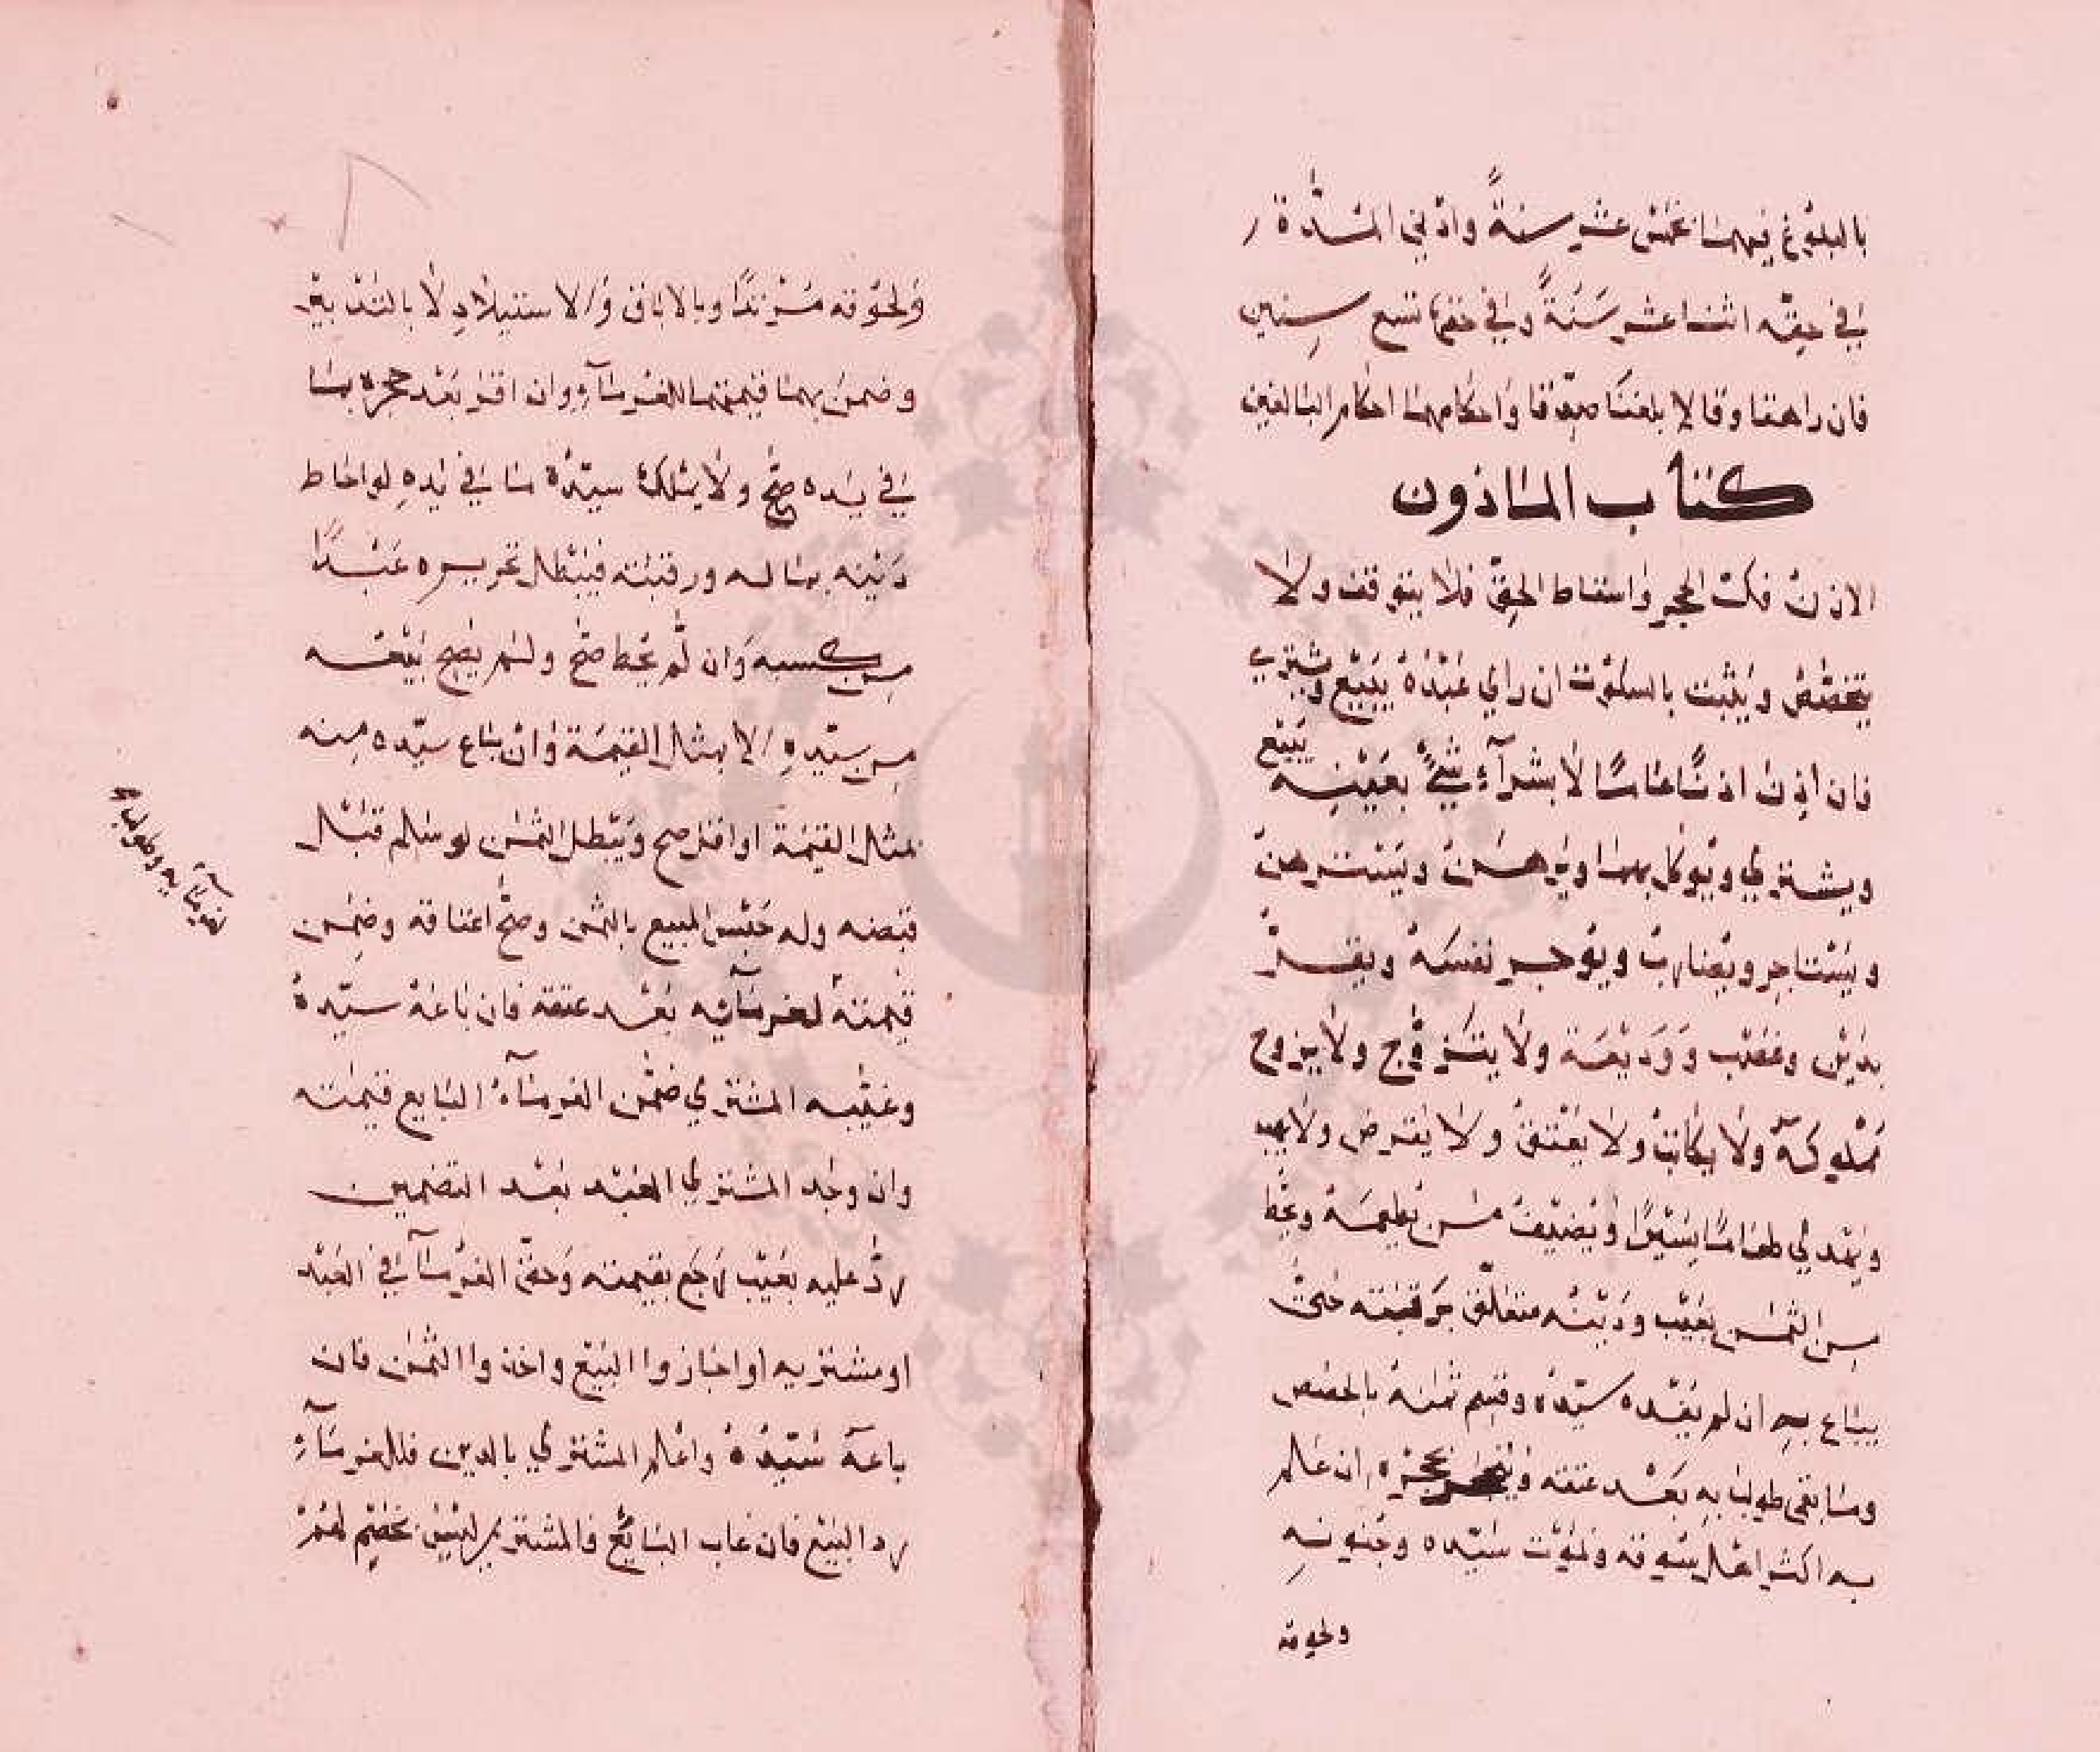 بالبلوغ فيهما بخمس عشر سنةً وادني المدّة
في حقّه اثنتا عشر سَنَةً وفي حقها تسع سنين
فان راهقا وقالا بلغنا صدّقا واحكامهما احكام البالغين
كتاب الماذون
الاذن فكّ الحجر واسقاط الحقّ فلا يتوقف ولا
يتخصّص ويثبت بالسكوت ان راي عبْدَهُ يبيع ويشتري
فان اذن اذنًا عامًا لا بشرآءِ شئٍ بعَيْنِه يَبيْع
ويشتري ويُوكل بهما ويرهن ويَسْترهن
ويَسْتاجر ويُضارب ويوجر نفسَهُ ويقرّ
بدَيْن وغصْب ووَديْعَة ولا يتزوّج ولا يزوج
ممْلوكَهُ ولا يكاتبُ ولا يعْتقُ ولا يقرض ولا يهب
ويُهْدي طعامًا يَسيْرًا ويُضيّفُ من يُطعِمَهُ ويحُطّ
من الثمن بعَيْب ودَيْنُه متعلّق برقبته حتّى
يباع به ان لم يفده سيّدهُ وقسم ثمنهُ بالحصص
وما بقى طولب به بَعْد عتقه وينحجر بحجْره ان علم
به اكثر اهل سُوقه وبمَوْت سَيّده وجُنونهِ
ولحوقه
ولحُوقه مُرْتدًا وبالاباق والاستيلادِ لا بالتدْبيْر
وضمن بهما قيمتهما للغرمآءِ وان اقر بَعْد حجره بما
في يَده صحّ ولا يَمْلكُ سيّدهُ ما في يَدهِ لو احاط
دَيْنه بماله ورقبته فيَبْطل تحريره عَبْدًا
من كسبه وان لم يُحط صَحّ ولم يصح بَيْعه
من سيّدهِ الا بمثل القيمَة وان باع سيّده منه
بمثل القيمَة او اقل صح ويَبْطل الثمن لو سَلم قبْل
قبضه وله حَبْس المبيع بالثمن وصحّ اعتاقه وضمن
قيمتهُ لغرمآئه بعْد عتقه فان باعَهُ سيّدهُ
وغيّبه المشتري ضمّن الغرمآءُ البايع قيمته
وان وجد المشتري العبْد بَعْد التضمين
ردّ عليه بعَيْب رجَع بقيمته وَحقّ الغرمآ في العَبْد
او مشتريه او اجازوا البَيْع واخذوا الثمن فان
باعَهُ سَيّدُهُ واعْلم المشتري بالدين فللغرمآءِ
رد البَيْع فان غاب البائعُ فالمشتري ليسَ بخصْم لهُمْ